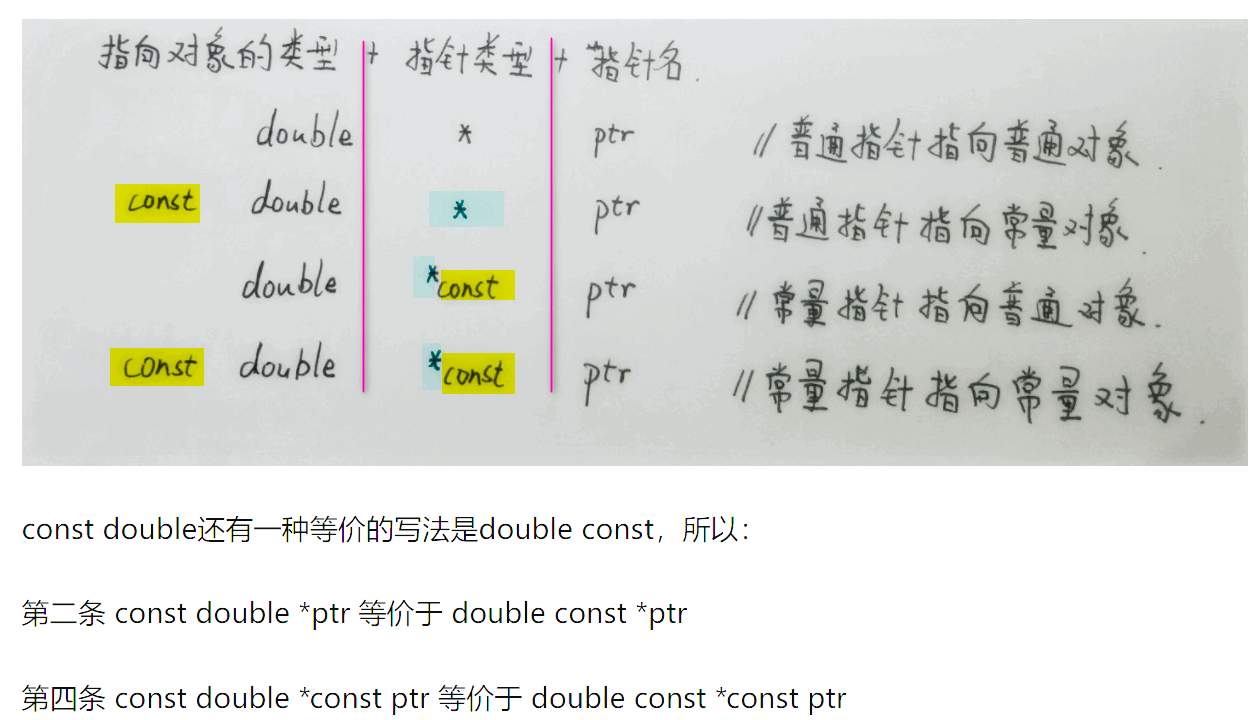 指向对象的类型 + 指针类型 + 指针名.
double * ptr //普通指针指向普通对象.
const double * ptr //普通指针指向常量对象.
double *const ptr //常量指针指向普通对象.
const double *const ptr //常量指针指向常量对象.
const double还有一种等价的写法是double const，所以：
第二条 const double *ptr 等价于 double const *ptr
第四条 const double *const ptr 等价于 double const *const ptr